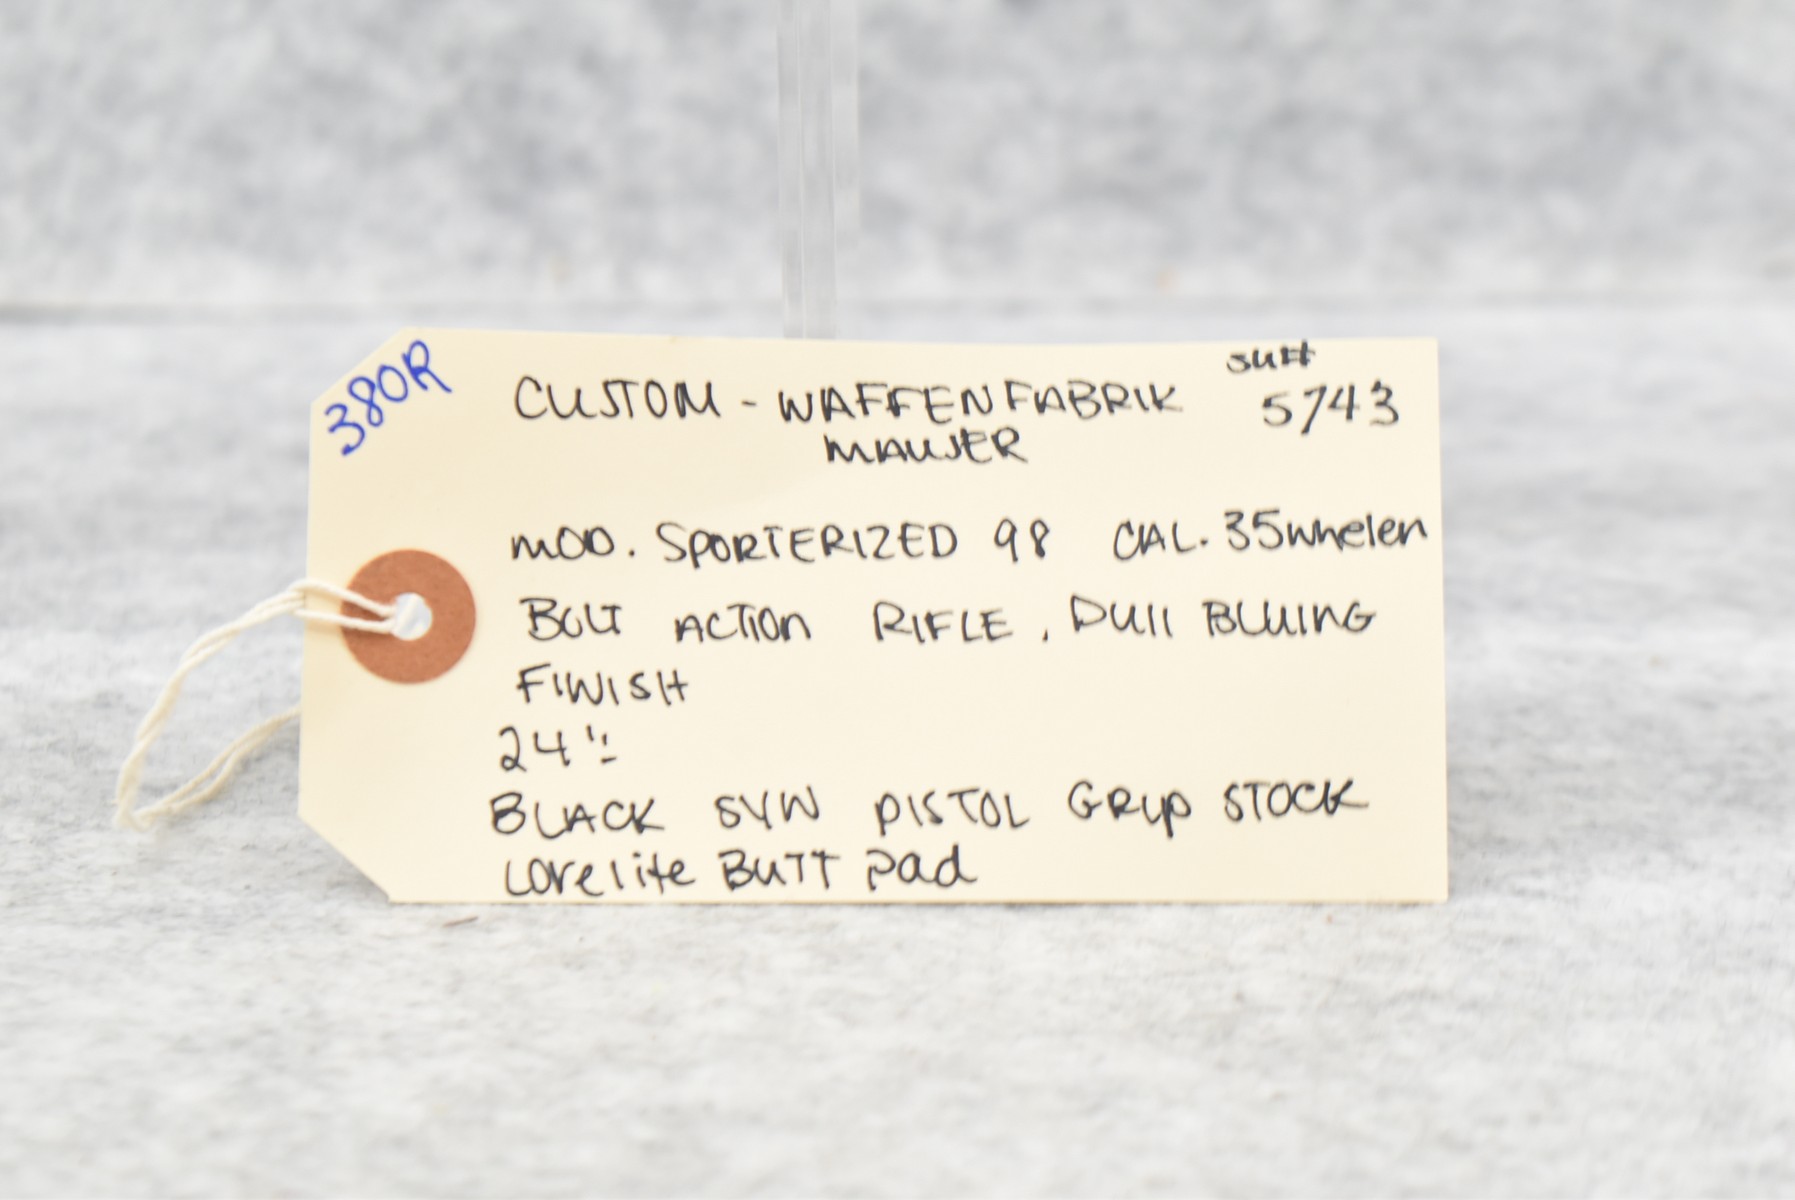 380R
CUSTOM - WAFFENFABRIK
MAUSER
su#
5743
MOD. SPORTERIZED 98 CAL. 35 Whelen
BOLT ACTION RIFLE, DUll BLUING
FINISH
24"
BLACK SYN PISTOL GRIP STOCK
Corelite BUTT pad